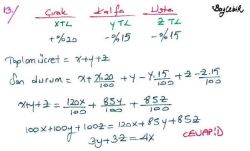 13/ Çırak Kalfa Usta
xTL yTL zTL
+%20 -%15 -%15
Toplam ücret = x+y+z
Son durum = x + x.20/100 + y - y.15/100 + z - z.15/100
x+y+z = 120x/100 + 85y/100 + 85z/100
100x+100y+100z = 120x+85y+85z
3y+3z = 4x
CEVAP:D